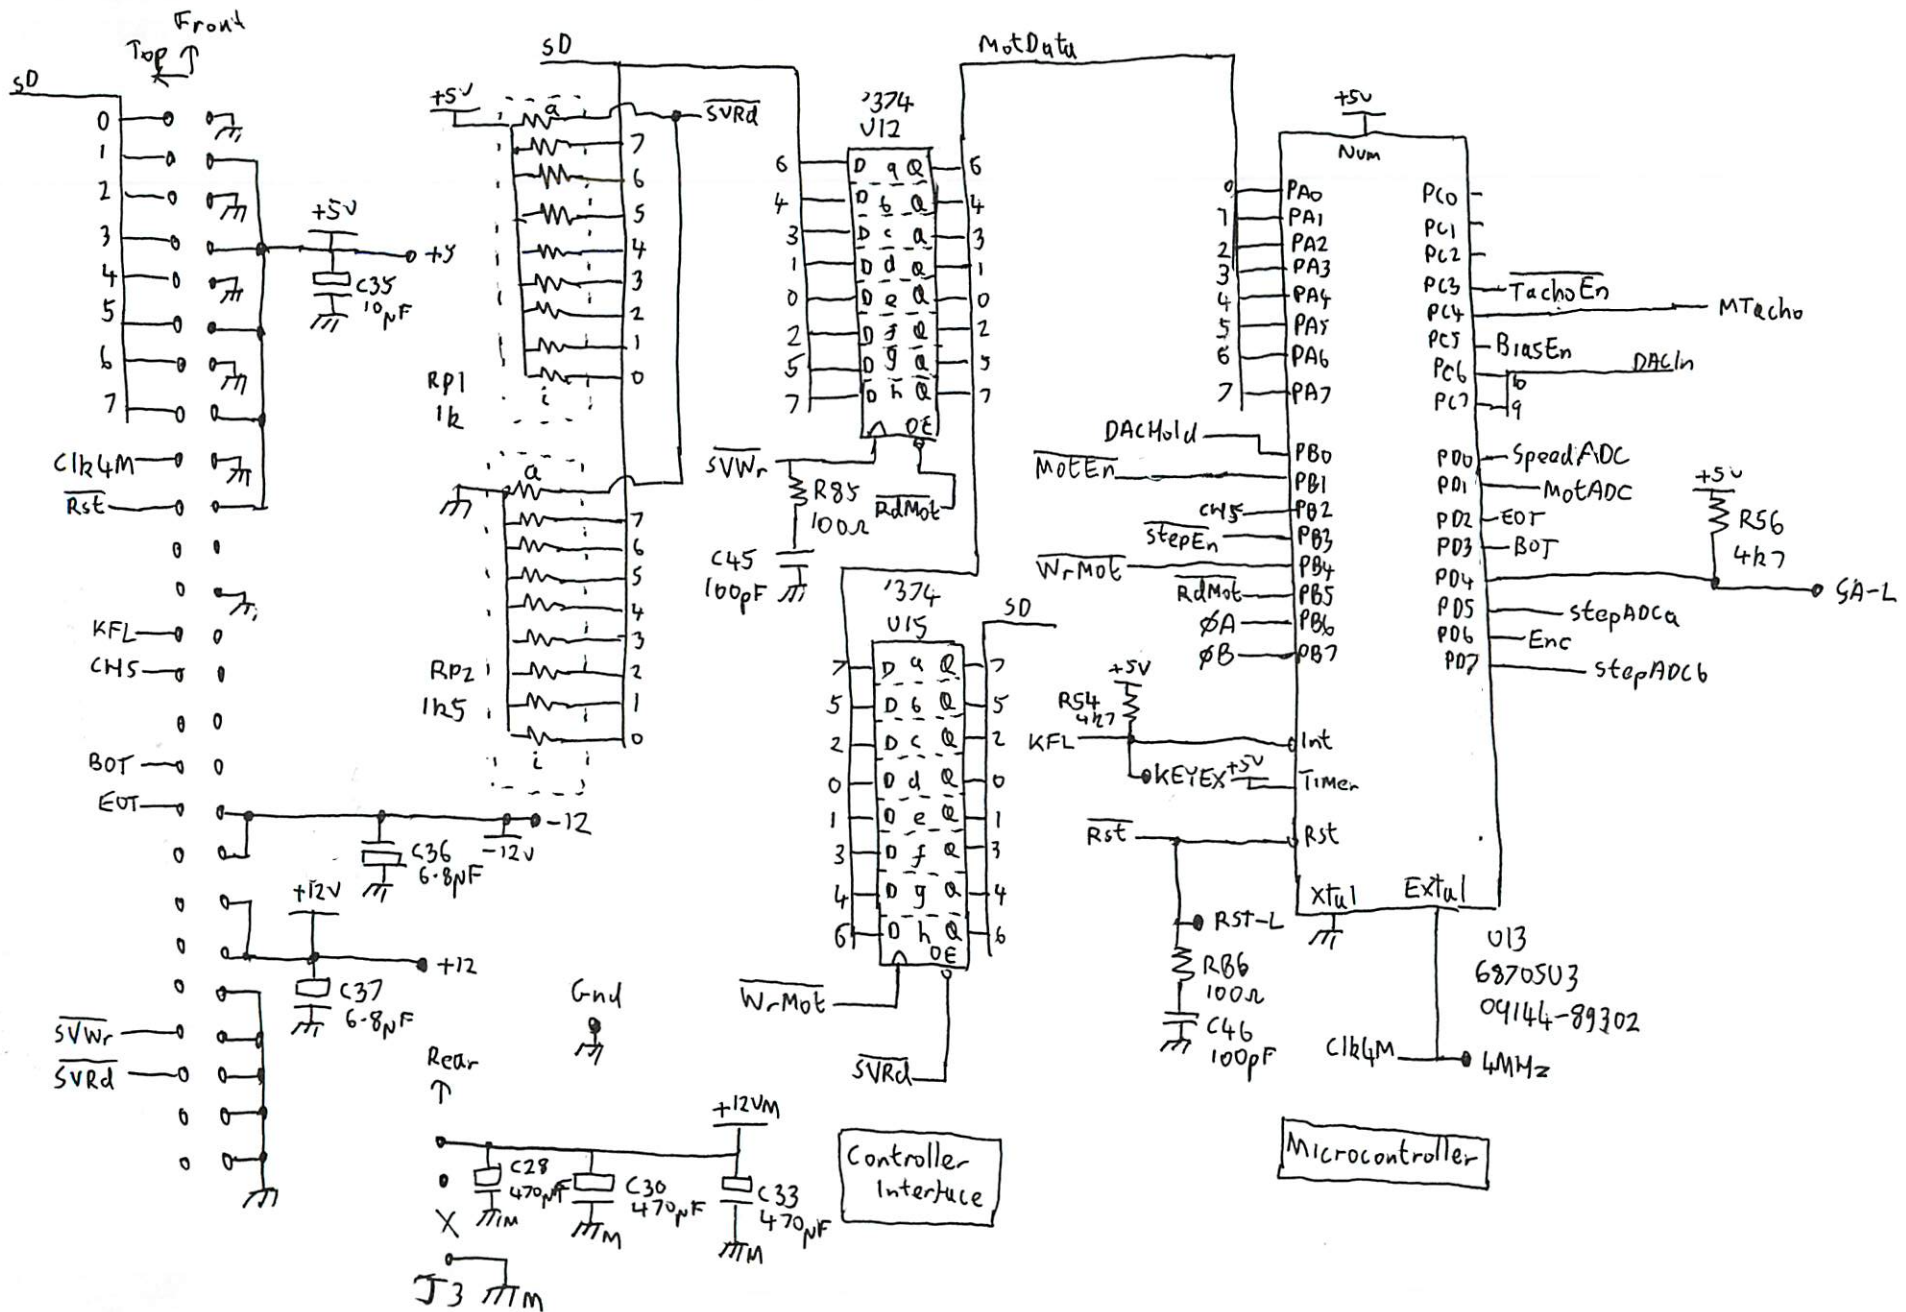 Front
Top
SD
0
1
2
3
4
5
6
7
Clk4M
Rst
KFL
CH5
BOT
EOT
SVWr
SVRd
+5V
+5
C35
10µF
-12
-12V
C36
6.8µF
+12V
+12
C37
6.8µF
SD
+5V
a
SVRd
7
6
5
4
3
2
1
0
i
Rp1
1k
a
7
6
5
4
3
2
1
0
i
Rp2
1k5
Gnd
Rear
+12VM
C28
470µF
M
C30
470µF
M
C33
470µF
M
X
J3
M
'374
U12
6 D a Q 6
4 D b Q 4
3 D c Q 3
1 D d Q 1
0 D e Q 0
2 D f Q 2
5 D g Q 5
7 D h Q 7
OE
SVWr
R85
100Ω
RdMot
C45
100pF
MotData
'374
U15
SD
7 D a Q 7
5 D b Q 5
2 D c Q 2
0 D d Q 0
1 D e Q 1
3 D f Q 3
4 D g Q 4
6 D h Q 6
OE
WrMot
SVRd
Controller
Interface
+5V
Num
0 PA0
1 PA1
2 PA2
3 PA3
4 PA4
5 PA5
6 PA6
7 PA7
DACHold PB0
MotEn PB1
CH5 PB2
StepEn PB3
WrMot PB4
RdMot PB5
ØA PB6
ØB PB7
+5V
R54
4k7
KFL Int
KEYEX +5V Timer
Rst Rst
RST-L
R86
100Ω
C46
100pF
PC0
PC1
PC2
PC3 TachoEn
PC4 MTacho
PC5 BiasEn
PC6 10 DACIn
PC7 9
PD0 SpeedADC
PD1 MotADC
PD2 EOT
PD3 BOT
PD4 SA-L
+5V
R56
4k7
PD5 StepADCa
PD6 Enc
PD7 StepADCb
Xtal Extal
U13
68705U3
09144-89302
Clk4M 4MHz
Microcontroller